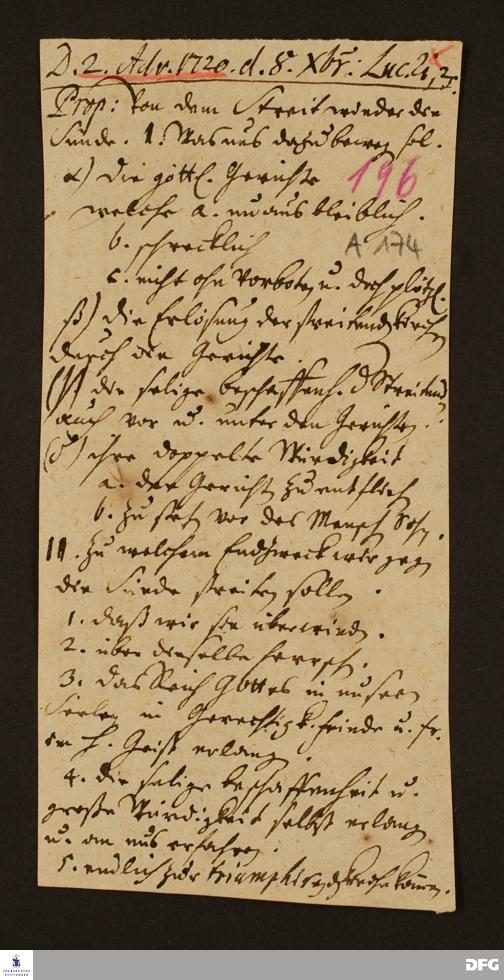 D. 2. Adv. 1720. d. 8. Xbr: Luc. 21, 25.
Prop: Von dem Streit wieder die
Sünde. 1. Was uns dazu beweg. sol.
α) Die göttl. Gerichte
196
welche a. unausbleiblich.
b. schrecklich
A 174
c. nicht ohn Vorboten u. doch plötzl.
β) die Erlösung der streitend. Kirch
durch die Gerichte.
(γ) die selige beschaffenh. d Streitend
auch vor u. unter den Gerichten.
(δ) ihre doppelte Würdigkeit
a. den Gericht zu entflieh
b. zu steh vor des Mensch Sohn.
II. zu welchem Endzweck wir geg
die Sünde streiten sollen.
1. daß wir sie überwind.
2. über dieselbe herrsch.
3. das Reich Gottes in unsern
Seelen in Gerechtigk. friede u. fr.
im H. Geist erlang.
4. die selige beschaffenheit u.
große Würdigkeit selbst erlang
u. an uns erfahren.
5. endlich zur triumphirend. kirche kom̄en.
DFG